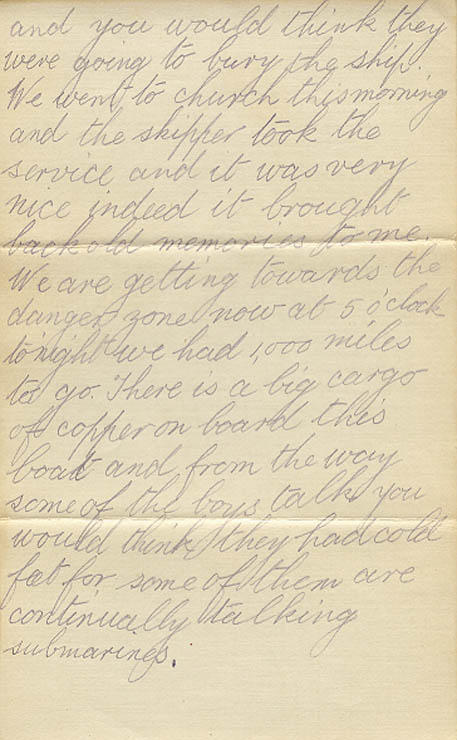 and you would think they
were going to bury the ship.
We went to church this morning
and the skipper took the
service and it was very
nice indeed it brought
back old memories to me.
We are getting towards the
danger zone now at 5 o'clock
tonight we had 1,000 miles
to go. There is a big cargo
of copper on board this
boat and from the way
some of the boys talk you
would think they had cold
feet for some of them are
continually talking
submarines.